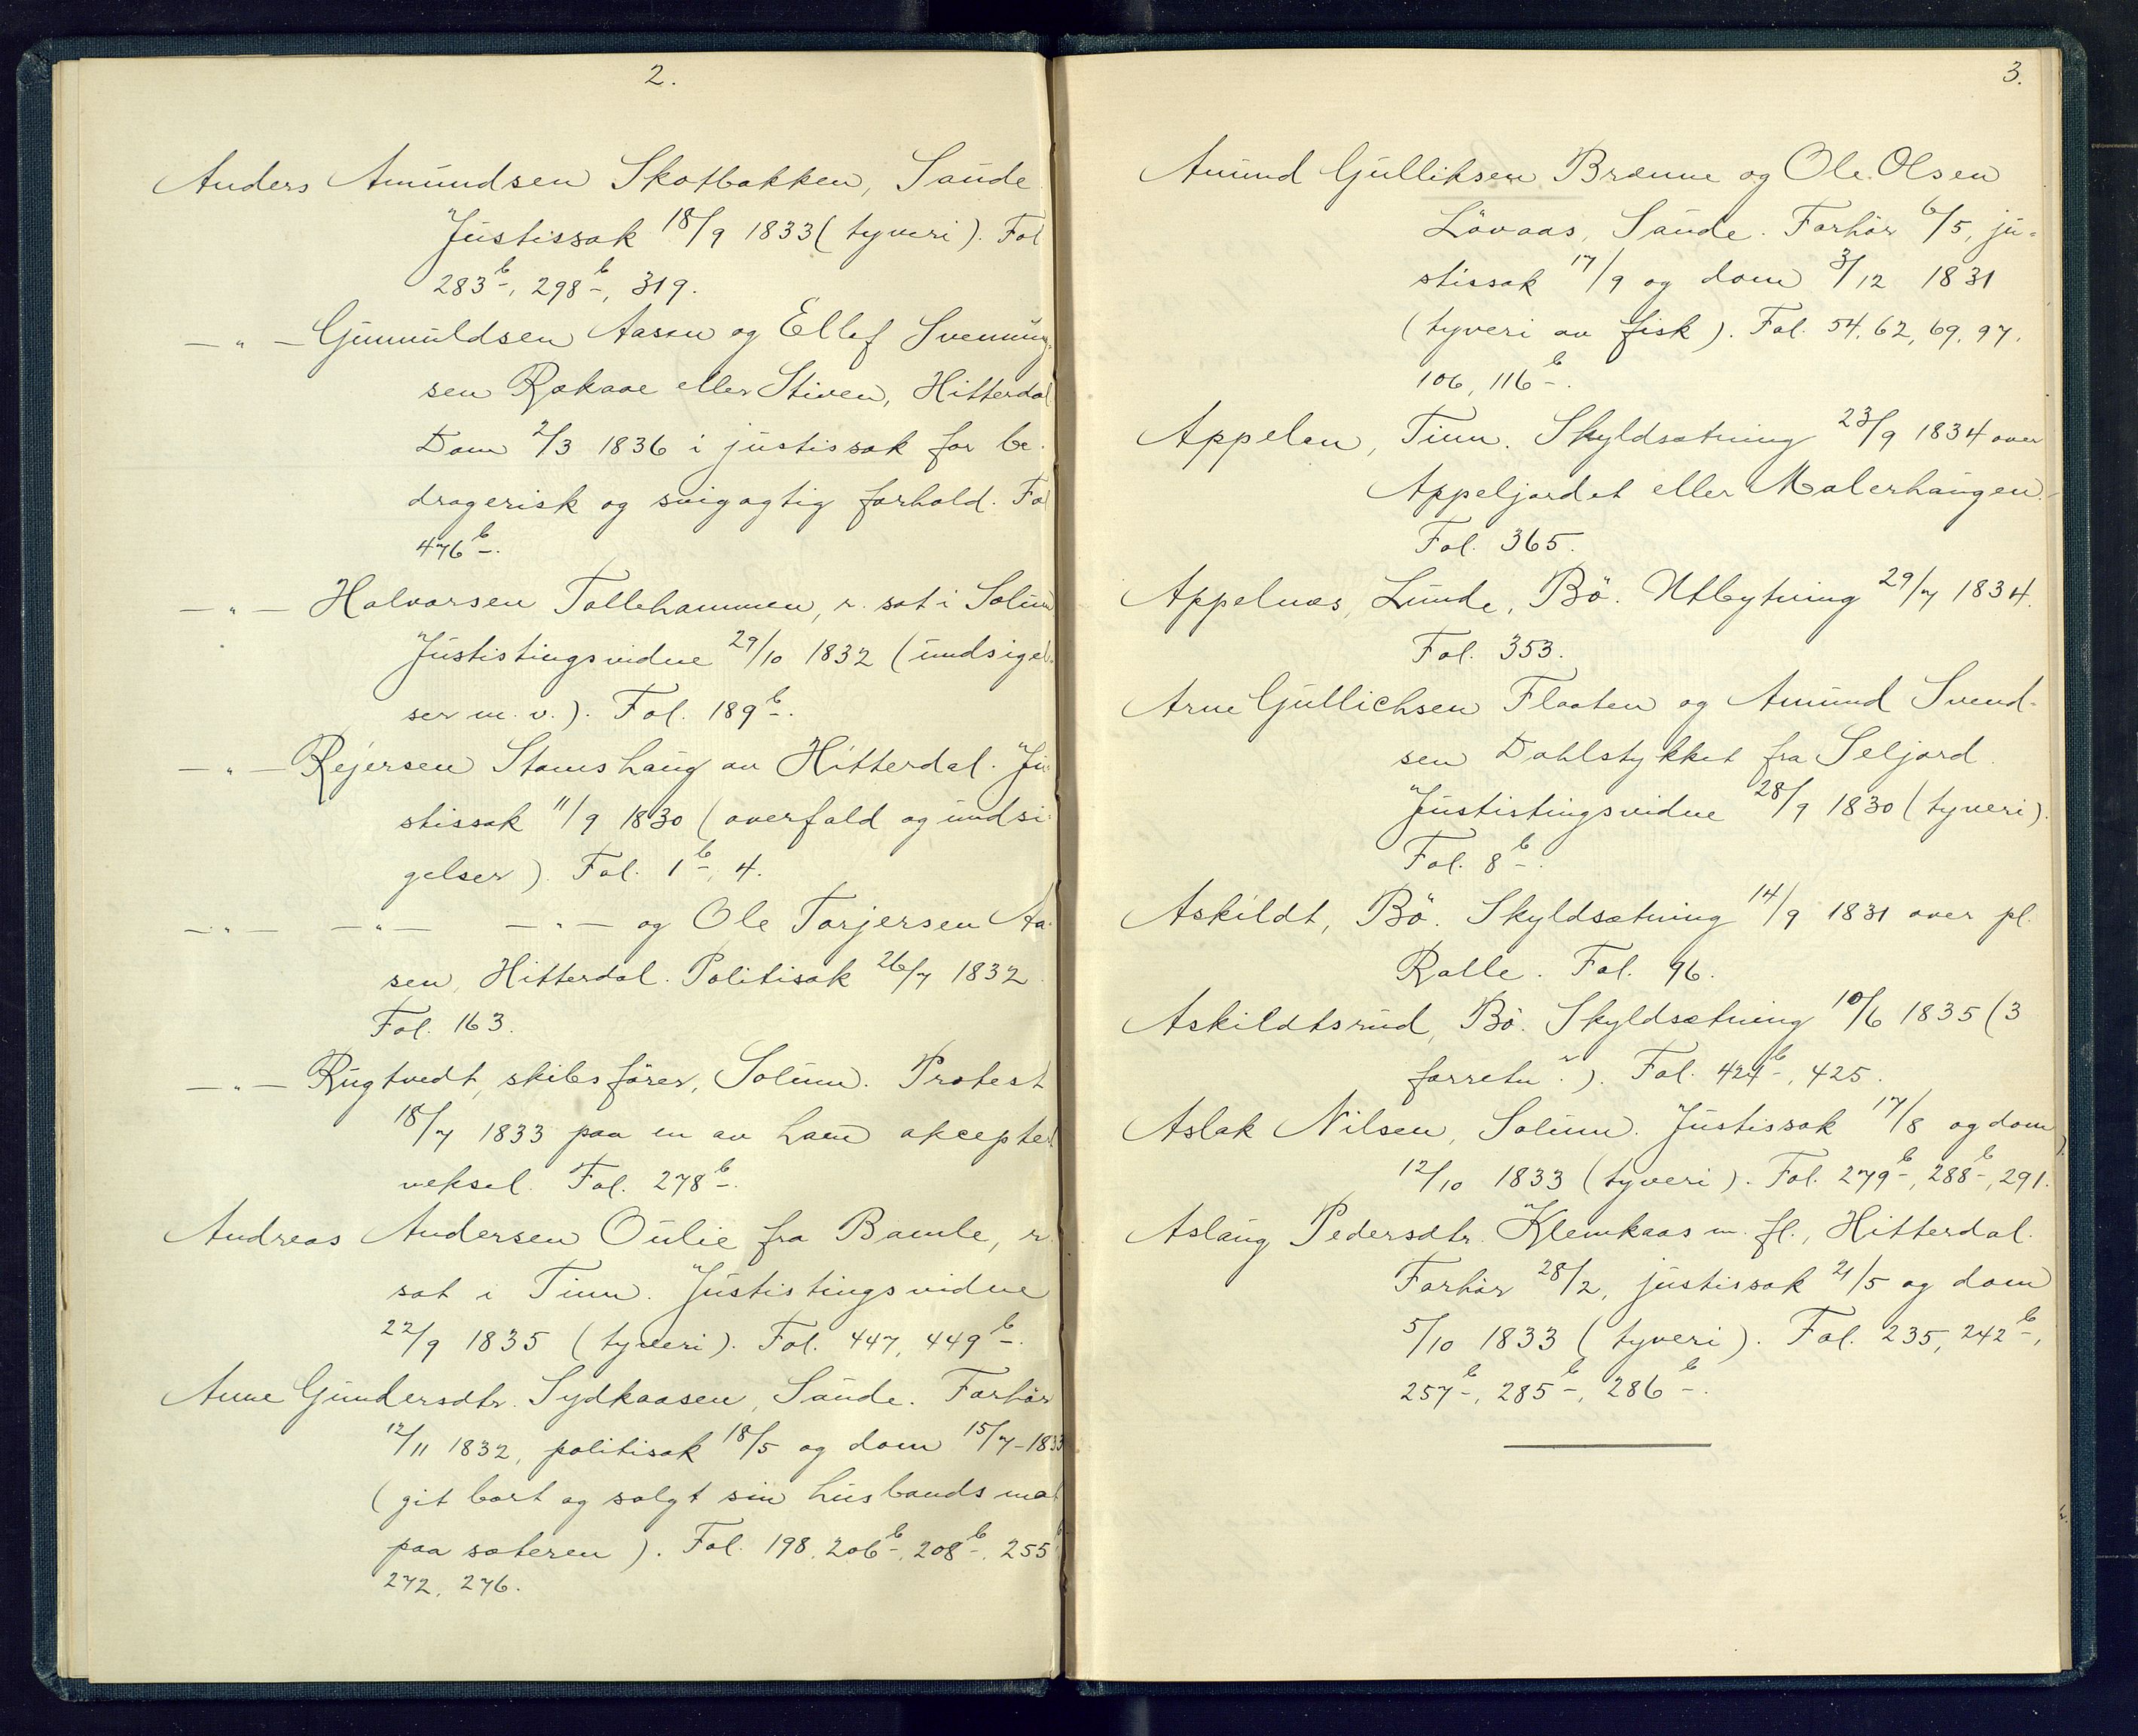 2.
Anders Amundsen Skotbakken, Saude
Justissak 18/9 1833 (tyveri). Fol
283 b, 298 b, 319.
— " — Gunnuldsen Aasen og Ellef Svennung-
sen Rokaae eller Stiven, Hitterdal
Dom 2/3 1836 i justissak for be-
dragerisk og svigagtig forhold. Fol
476 b.
— " — Halvorsen Tollehammen, r. sat i Solum
Justistingsvidne 29/10 1832 (undsigel-
ser m. v.). Fol. 189 b.
— " — Rejersen Stamshaug av Hitterdal. Ju-
stissak 11/9 1830 (overfald og undsi-
gelser). Fol. 1 b, 4.
— " — — " — — " — og Ole Torjersen Aa-
sen, Hitterdal. Politisak 26/7 1832
Fol. 163.
— " — Rugtvedt, skibsfører, Solum. Protest
18/7 1833 paa en av ham aksepte
veksel. Fol. 278 b.
Andreas Andersen Oulie fra Bamle, r.
sat i Tinn. Justistingsvidne
22/9 1835 (tyveri). Fol. 447, 449 b.
Anne Gundersdtr. Sydkaasen, Saude. Forhör
12/11 1832, politisak 18/5 og dom 15/7 - 1833
(git bort og solgt sin husbonds mat
paa sæteren). Fol. 198, 206 b, 208 b, 255
272, 276.
3.
Amund Gulliksen Brænne og Ole Olsen
Lövaas, Saude. Forhör 6/5, ju-
stissak 17/9 og dom 3/12 1831
(tyveri av fisk). Fol. 54, 62, 69, 97,
106, 116 b.
Appelen, Tinn. Skyldsætning 23/9 1834 over
Appeljordet eller Malerhaugen.
Fol. 365.
Appelnæs, Lunde, Bö. Utbytning 29/7 1834.
Fol. 353.
Arne Gullichsen Flaaten og Amund Svend-
sen Dahlstykket fra Seljord.
Justistingsvidne 28/9 1830 (tyveri).
Fol. 8 b.
Askildt, Bö. Skyldsætning 14/9 1831 over pl.
Ralle. Fol. 96.
Askildtsrud, Bö. Skyldsætning 10/6 1835 (3
forretn.r). Fol. 424 b, 425.
Aslak Nilsen, Solum. Justissak 17/8 og dom
12/10 1833 (tyveri). Fol. 279 b, 288 b, 291.
Aslaug Pedersdtr. Klemkaas m. fl., Hitterdal.
Forhör 28/2, justissak 21/5 og dom
5/10 1833 (tyveri). Fol. 235, 242 b,
257 b, 285 b, 286 b.